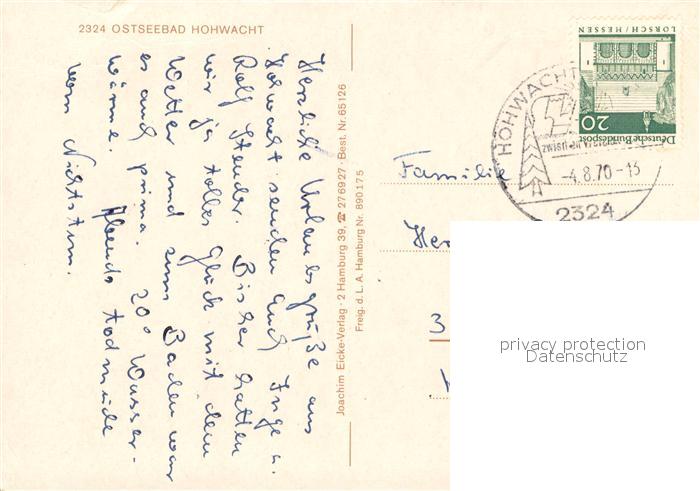 2324 OSTSEEBAD HOHWACHT
Herzliche Urlaubsgrüße aus
Hohwacht senden Euch Inge u.
Rolf Stender. Bisher hatten
wir ja tolles Glück mit dem
Wetter und zum Baden war
es auch prima. 20° Wasser-
wärme. Abends todmüde
vom Nichtstun.
Joachim Eicke-Verlag · 2 Hamburg 39, ☎ 276927 · Best. Nr. 65126
Freig. d. L. A. Hamburg Nr. 890175
LORSCH/HESSEN
20
Deutsche Bundespost
HOHWACHT
-4.8.70-13
2324
Familie
Her
3
privacy protection
Datenschutz